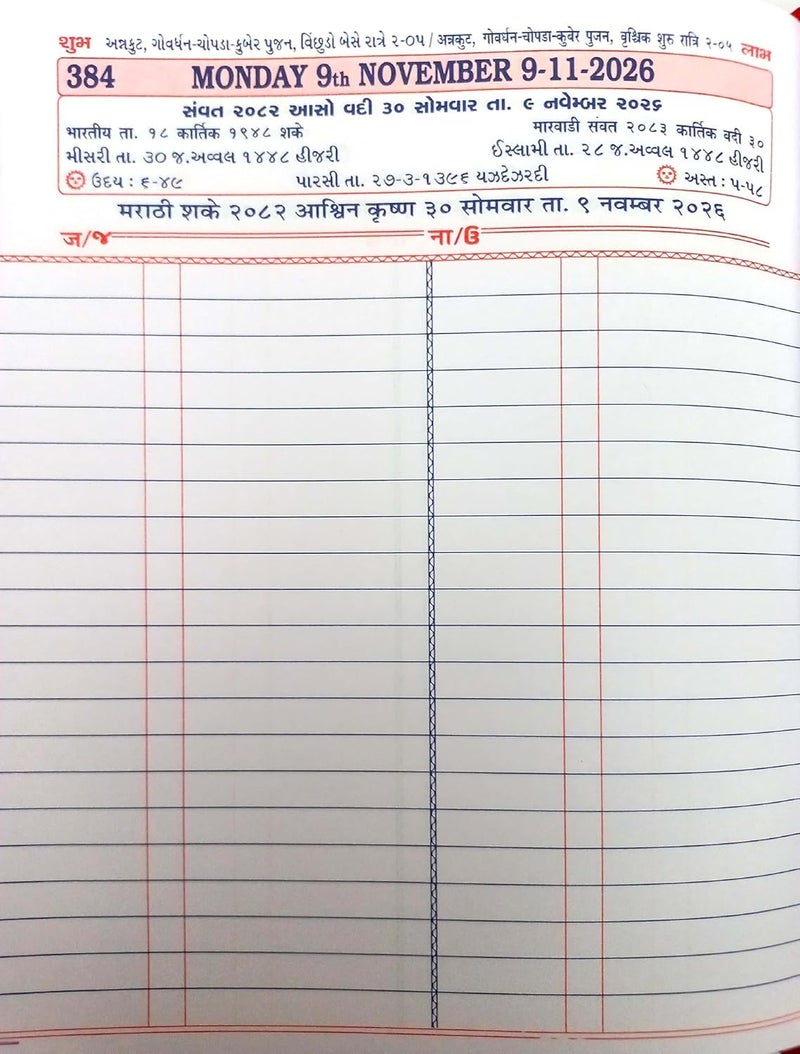 શુભ અન્નકુટ, ગોવર્ધન-ચોપડા-કુબેર પુજન, વિંછુડો બેસે રાત્રે ૨-૦૫ / अन्नकुट, गोवर्धन-चोपडा-कुबेर पुजन, वृश्चिक शुरु रात्रि २-०५ લાભ
384 MONDAY 9th NOVEMBER 9-11-2026
સંવત ૨૦૮૨ આસો વદી ૩૦ સોમવાર તા. ૯ નવેમ્બર ૨૦૨૬
भारतीय ता. १८ कार्तिक १९४८ शके मारवाडी संवत २०८३ कार्तिक वदी ३०
મીસરી તા. ૩૦ જ.અવ્વલ ૧૪૪૮ હીજરી ઈસ્લામી તા. ૨૮ જ.અવ્વલ ૧૪૪૮ હીજરી
ઉદય : ૬-૪૯ પારસી તા. ૨૭-૩-૧૩૯૬ યઝદેઝરદી અસ્ત : ૫-૫૮
मराठी शके २०८२ आश्विन कृष्ण ३० सोमवार ता. ९ नवम्बर २०२६
ज/જ ना/ઉ